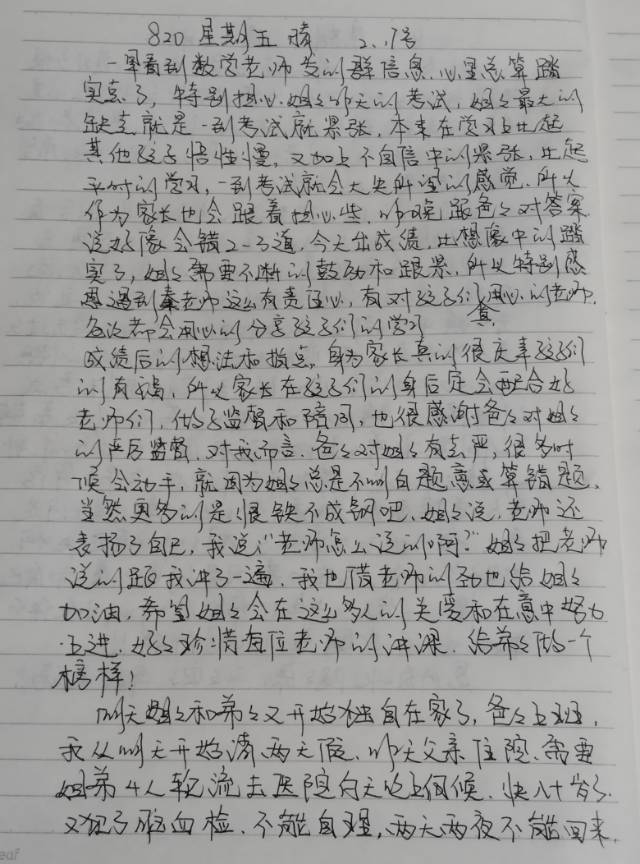 820 星期五 晴 2..1号
一早看到数学老师发的群信息,心里总算踏
实点了,特别担心姐姐昨天的考试,姐姐最大的
缺点就是一到考试就紧张,本来在学习上比起
其他孩子悟性慢,又加上不自信中的紧张,比起
平时的学习,一到考试就会大失所望的感觉,所以
作为家长也会跟着担心些,昨晚跟爸爸对答案
说好像会错2-3道,今天出成绩,比想像中的踏
实了,姐姐需要不断的鼓励和跟紧,所以特别感
恩遇到秦老师这么有责任心,有对孩子们用心的老师.
每次都会用心的分享孩子们的学习
成绩后的想法和指点,身为家长真的很庆幸孩子们
的有福,所以家长在孩子们的身后定会配合好
老师们,做了监督和陪同,也很感谢爸爸对姐姐
的严厉监督,对我而言,爸爸对姐姐有点严,很多时
候会动手,就因为姐姐总是不明白题意或算错题,
当然更多的是恨铁不成钢吧,姐姐说,老师还
表扬了自己,我说:"老师怎么说的啊?"姐姐把老师
说的跟我讲了一遍,我也借老师的劲也给姐姐
加油,希望姐姐会在这么多人的关爱和在意中努力
上进,好好珍惜每位老师的讲课,给弟弟做一个
榜样!
明天姐姐和弟弟又开始独自在家了,爸爸上班,
我从明天开始请两天假,昨天父亲住院,需要
姐弟4人轮流去医院白天晚上伺候,快八十岁了
又犯了脑血栓,不能自理,两天两夜不能回来,